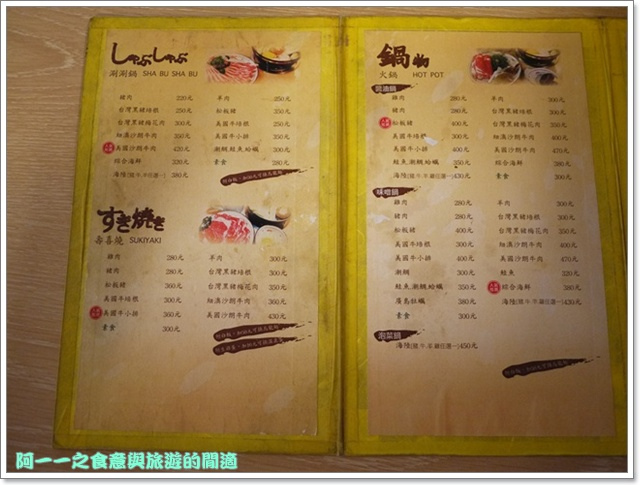 しゃぶしゃぶ
涮涮鍋 SHA BU SHA BU
豬肉 220元
台灣黑豬培根 250元
台灣黑豬梅花肉 300元
紐澳沙朗牛肉 350元
美國沙朗牛肉 420元
綜合海鮮 330元
海陸(豬.牛.羊.雞任選一) 380元
羊肉 250元
松板豬 350元
美國牛培根 250元
美國牛小排 350元
潮鯛鮭魚蛤蠣 300元
素食 280元
すき焼き
壽喜燒 SUKIYAKI
雞肉 280元
豬肉 280元
松板豬 360元
美國牛培根 300元
美國牛小排 360元
素食 300元
羊肉 300元
台灣黑豬培根 300元
台灣黑豬梅花肉 350元
紐澳沙朗牛肉 360元
美國沙朗牛肉 430元
鍋物
火鍋 HOT POT
醬油鍋
雞肉 280元
豬肉 280元
松板豬 400元
美國牛培根 300元
美國牛小排 400元
鮭魚潮鯛蛤蠣 350元
海陸(豬.牛.羊.雞任選一) 430元
羊肉 300元
台灣黑豬培根 300元
台灣黑豬梅花肉 350元
紐澳沙朗牛肉 400元
美國沙朗牛肉 470元
綜合海鮮 380元
素食 300元
味噌鍋
雞肉 280元
豬肉 280元
松板豬 400元
美國牛培根 300元
美國牛小排 400元
潮鯛 300元
鮭魚潮鯛蛤蠣 350元
廣島牡蠣 380元
海陸(豬.牛.羊.雞任選一) 430元
羊肉 300元
台灣黑豬培根 300元
台灣黑豬梅花肉 350元
紐澳沙朗牛肉 400元
美國沙朗牛肉 470元
鮭魚 320元
綜合海鮮 380元
泡菜鍋
海陸(豬.牛.羊.雞任選一) 450元
阿一一之食意與旅遊的間適